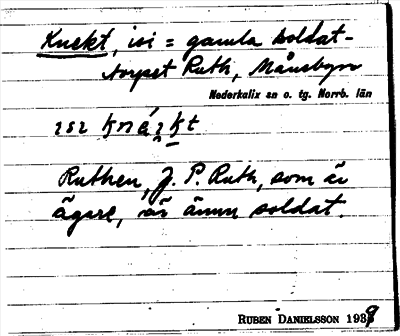 Knekt, isi = gamla soldat-
torpet Ruth, Månsbyn
Nederkalix sn o. tg. Norrb. län
ısı knɛ́ı̯kt
Ruthen, J. P. Ruth, som är
ägare, är ännu soldat.
RUBEN DANIELSSON 1939